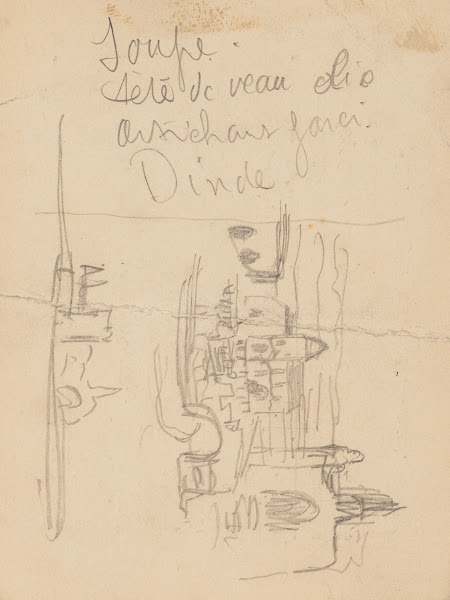 Soupe.
tete de veau
artichaux farci.
Dinde